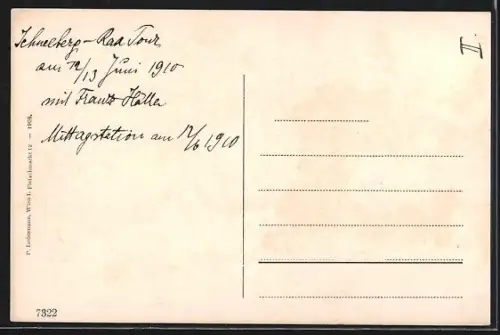 Schneeberg-Rad Tour
am 12/13 Juni 1910
mit Frantz Haller
Mittagstation am 12/6 1910
II.
P. Ledermann, Wien I. Fleischmarkt 12 — 1908.
7322